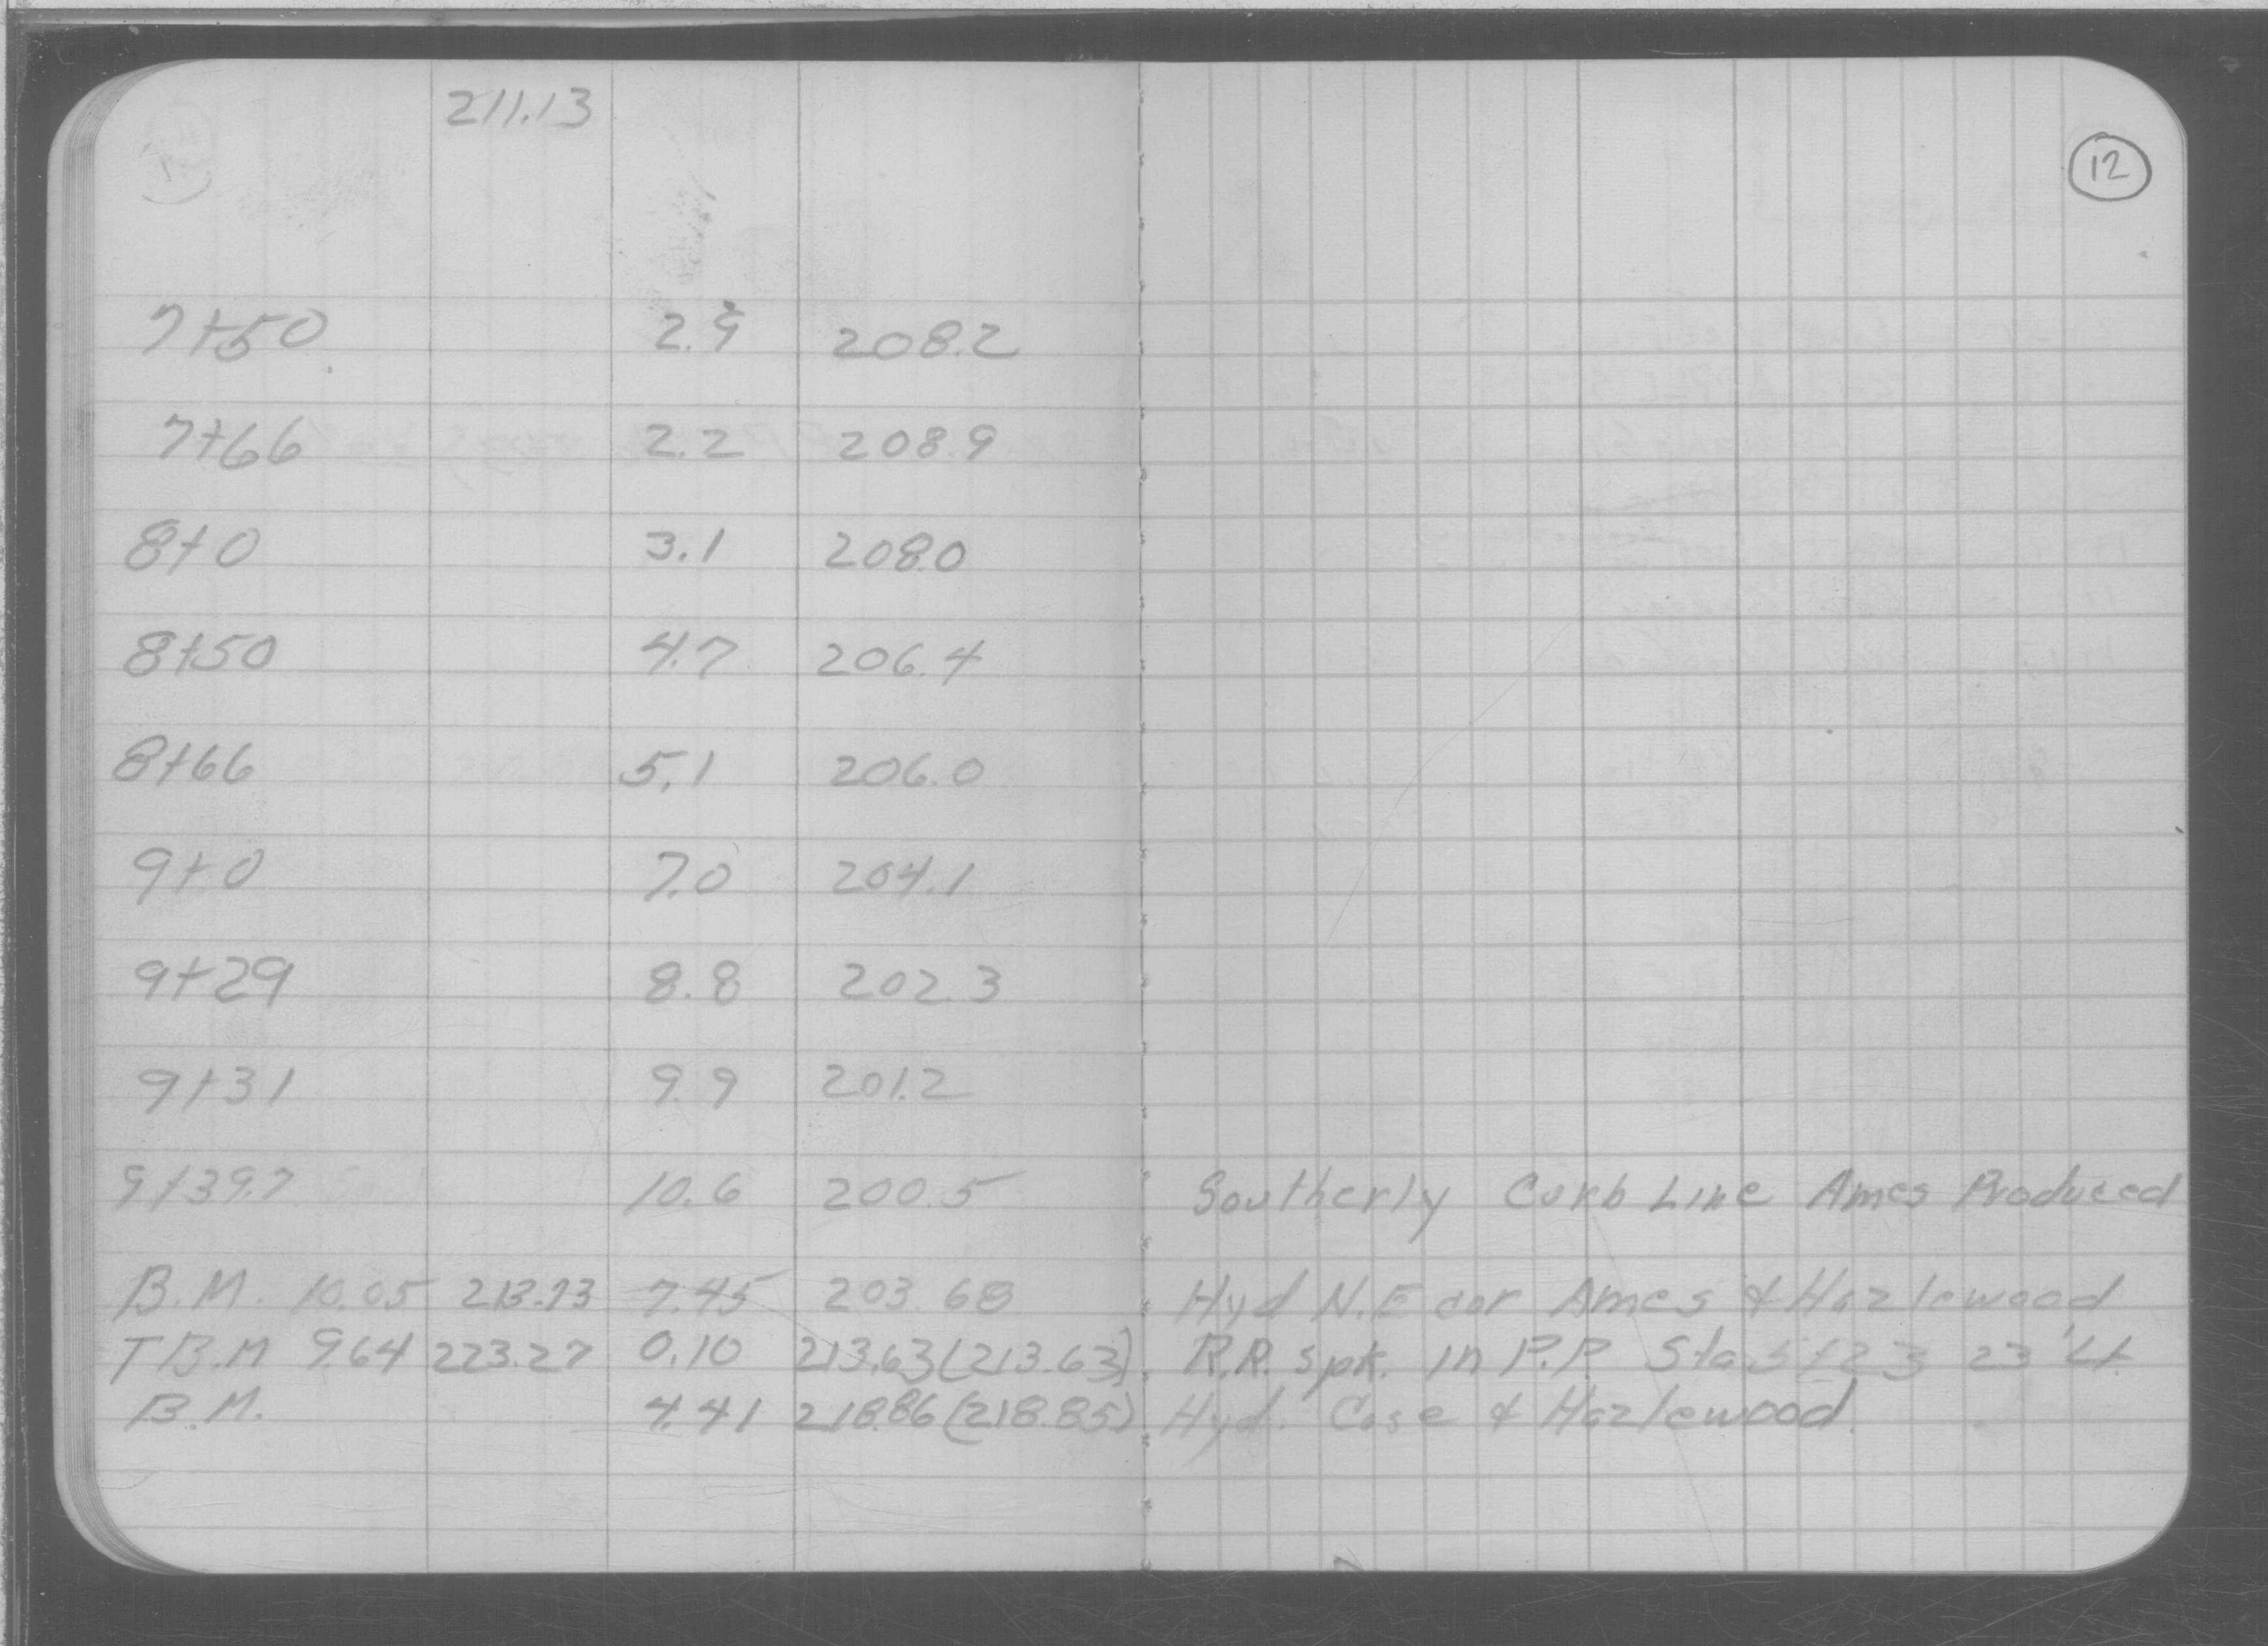 211.13
12
7+50 2.9 208.2
7+66 2.2 208.9
8+0 3.1 208.0
8+50 4.7 206.4
8+66 5.1 206.0
9+0 7.0 204.1
9+29 8.8 202.3
9+31 9.9 201.2
9+39.7 10.6 200.5 Southerly Curb Line Ames Produced
B.M. 10.05 213.73 7.45 203.68 Hyd N.E cor Ames & Hazlewood
T B.M 9.64 223.27 0.10 213.63 (213.63) R.R. spk. in P.P. Sta 5+23 23' Lt
B.M. 4.41 218.86 (218.85) Hyd. Case & Hazlewood.